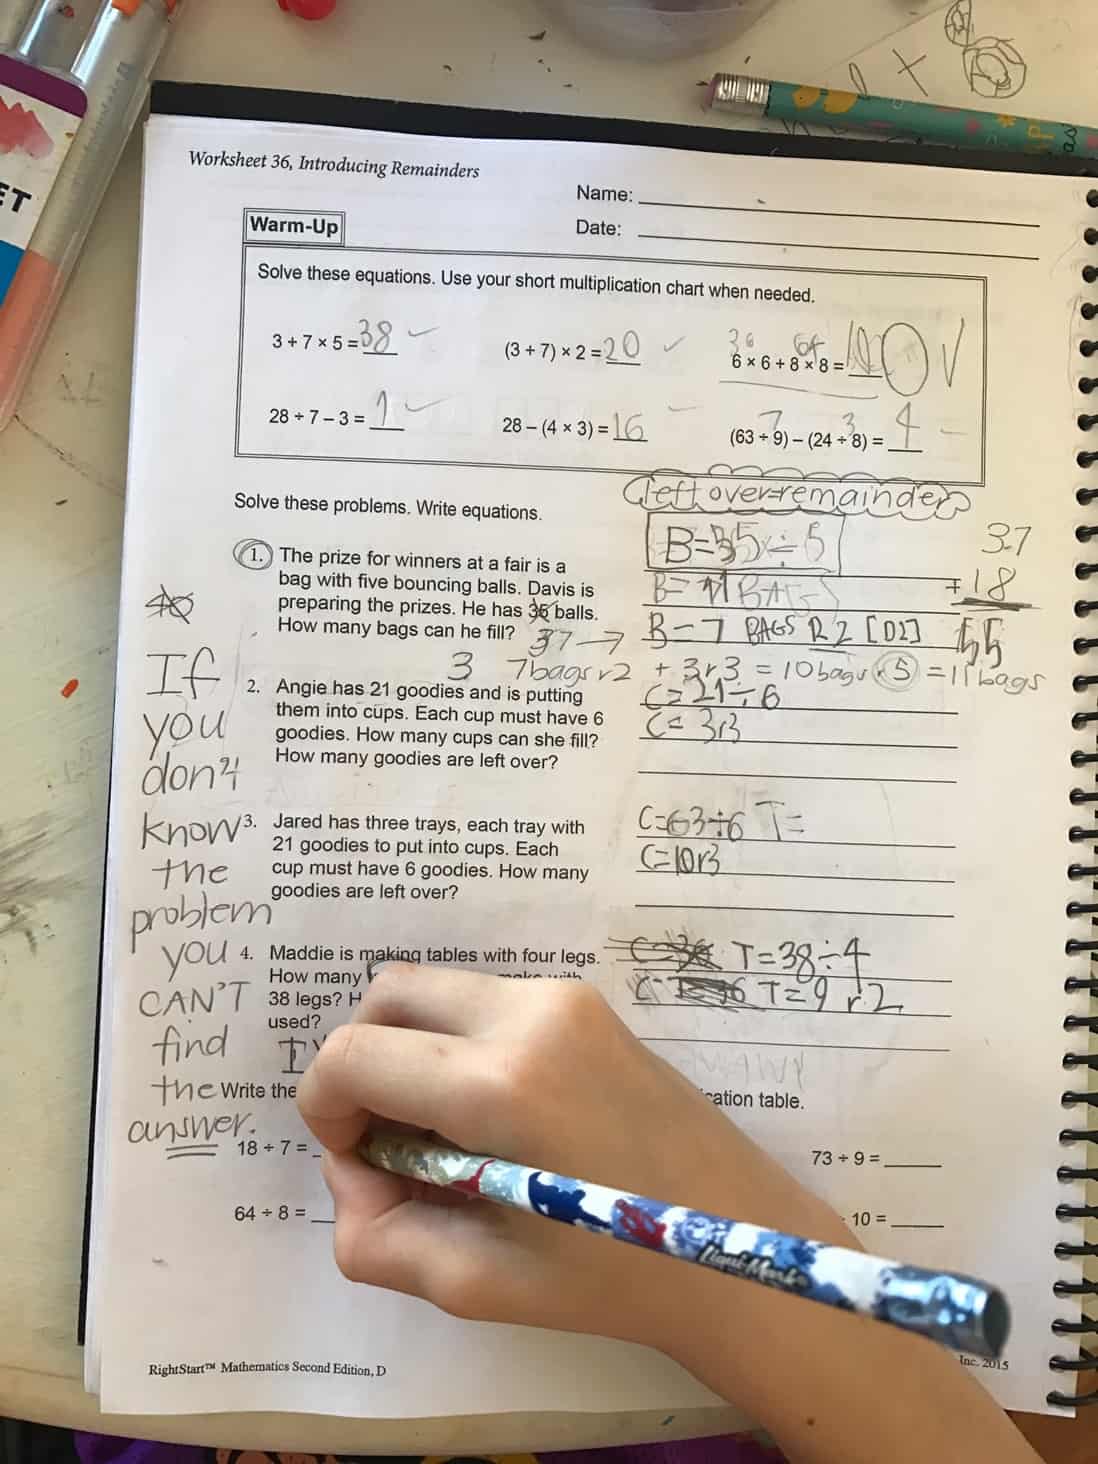 ET
Worksheet 36, Introducing Remainders
Name:
Date:
Warm-Up
Solve these equations. Use your short multiplication chart when needed.
3 + 7 × 5 = 38
(3 + 7) × 2 = 20
36 64
6 × 6 + 8 × 8 = 100
28 ÷ 7 – 3 = 1
28 – (4 × 3) = 16
7 3
(63 ÷ 9) – (24 ÷ 8) = 4
left over=remainder
Solve these problems. Write equations.
1. The prize for winners at a fair is a
bag with five bouncing balls. Davis is
preparing the prizes. He has 35 balls.
How many bags can he fill?
37 →
B=35÷5
B= BAGS
B=7 BAGS R2
37
+18
55
3 7bags r2 + 3r3 = 10bags r5 = 11bags
2. Angie has 21 goodies and is putting
them into cups. Each cup must have 6
goodies. How many cups can she fill?
How many goodies are left over?
C=21÷6
C= 3r3
3. Jared has three trays, each tray with
21 goodies to put into cups. Each
cup must have 6 goodies. How many
goodies are left over?
C=63÷6 T=
C=10r3
4. Maddie is making tables with four legs.
How many make with
38 legs? H
used?
T=38÷4
T=9 r2
If
you
don't
know
the
problem
you
CAN'T
find
the
answer.
Write the
cation table.
18 ÷ 7 =
73 ÷ 9 =
64 ÷ 8 =
10 =
Liquid Marks
RightStart™ Mathematics Second Edition, D
Inc. 2015